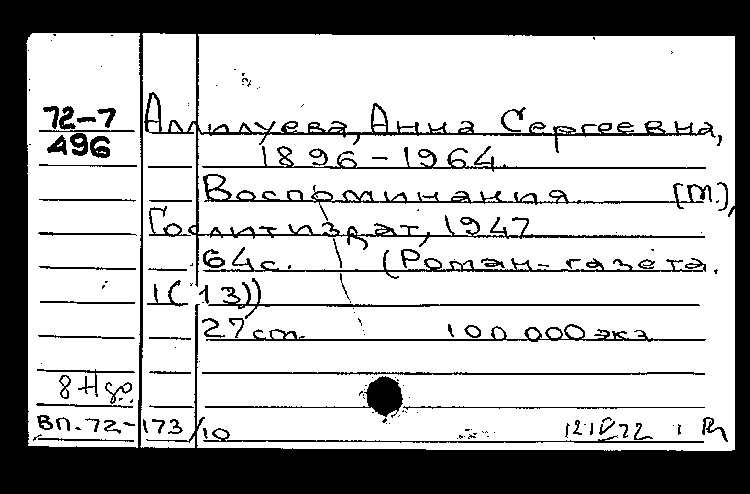 72-7
496
Аллилуева, Анна Сергеевна,
1896-1964.
Воспоминания [М.],
Гослитиздат, 1947
64с. (Роман-газета.
1(13))
27см. 100 000 экз
вп.72-173/10